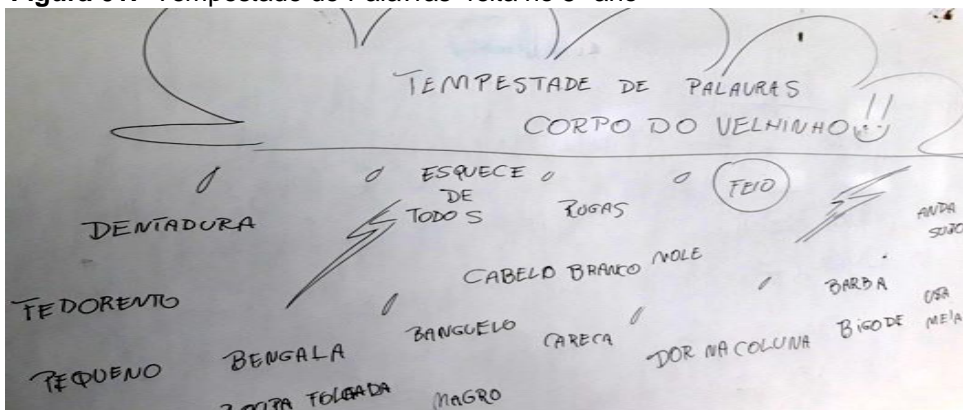 TEMPESTADE DE PALAURAS
CORPO DO VELHINHO!!
DENTADURA
ESQUECE
DE
TODOS
RUGAS
FEIO
ANDA
SUJO
FEDORENTO
CABELO BRANCO
MOLE
BARBA
USA
MEIA
PEQUENO
BENGALA
BANGUELO
CARECA
DOR NA COLUNA
BIGODE
ROUPA FOLGADA
MAGRO